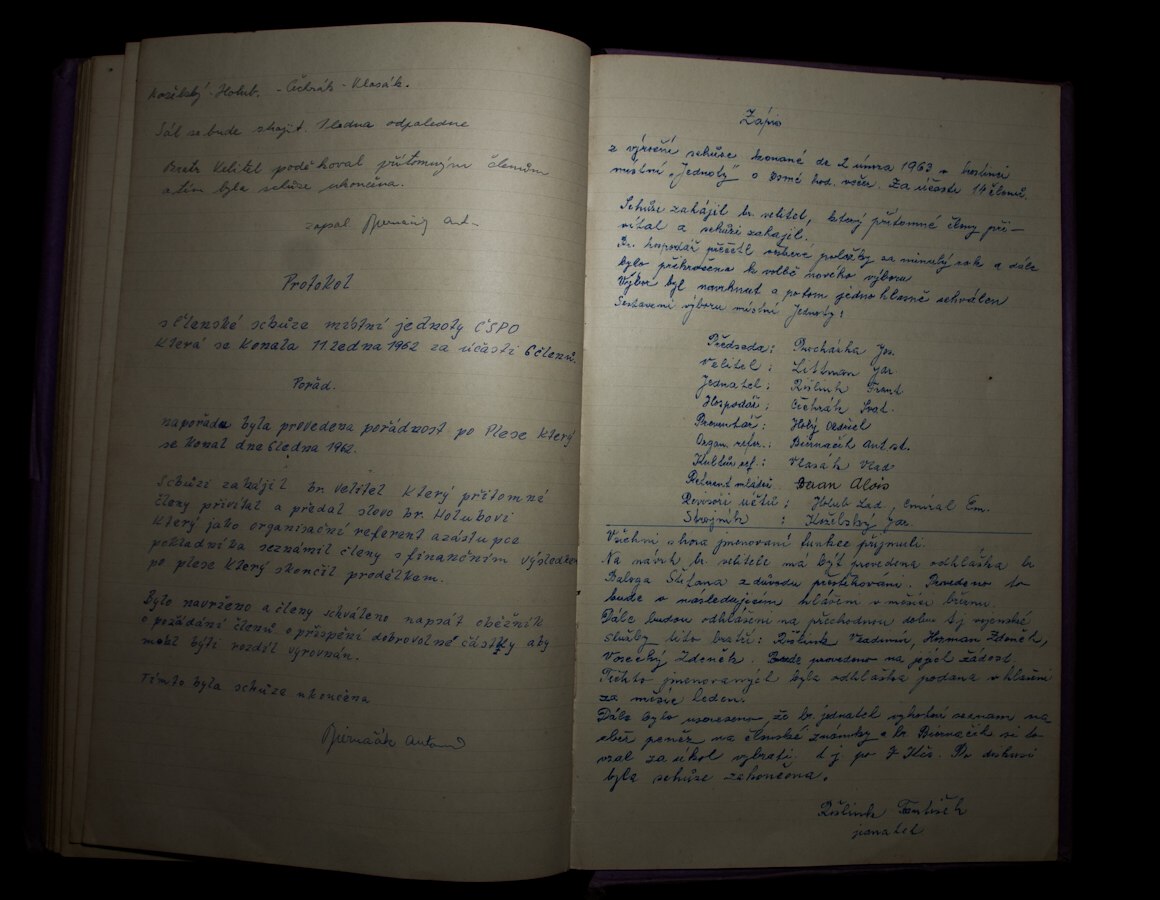 Koželský - Holub. - Čechrák - Vlasák.
Sál se bude strojit. 1 ledna odpoledne
Bratr Velitel poděkoval přítomným členům
a tím byla schůze ukončena.
zapsal Biernačik Ant.
Protokol
s členské schůze místní jednoty ČSPO
která se konala 11 ledna 1962 za účasti 6 členů.
Pořad.
na pořadu byla provedena pořádnost po Plese který
se konal dne 6 ledna 1962.
Schůzi zahájil br. Velitel který přítomné
členy přivítal a předal slovo br. Holubovi
který jako organisační referent a zástupce
pokladníka seznámil členy s finančním výsledkem
po plese který skončil prodělkem.
Bylo navrženo a členy schváleno napsat oběžník
o požádání členů o přispění dobrovolné částky aby
mohl býti rozdíl vyrovnán.
Tímto byla schůze ukončena
Biernačik Antonín
Zápis
z výroční schůze konané de 2 února 1963 v hostinci
místní "Jednoty" o osmé hod. večer. Za účasti 14 členů.
Schůze zahájil br. velitel, který přítomné členy při-
vítal a schůzi zahájil.
Br. hospodář přečetl veškeré položky za minulý rok a dále
bylo překročeno k volbě nového výboru
Výbor byl navrhnut a potom jednohlasně schválen
Sestavení výboru místní Jednoty:
Předseda: Procházka Jos.
Velitel: Littman Jar.
Jednatel: Rišlink Frant
Hospodář: Čechrák Svat.
Preventář:
Organ. refer.: Biernačik Ant st.
Kultur. ref.: Vlasák Vlad
Referent mládeže Beran Alois
Revisoři účtů: Holub Lad, Cmíral Em.
Strojník: Koželský Jar.
Všichni shora jmenovaní funkce přijmuli.
Na návrh br. velitele má být provedena odhláška br
Baloga Štefana z důvodu přestěhování. Provedeno to
bude v následujícím hlášení v měsíci březnu.
Dále budou odhlášeni na přechodnou dobu t.j vojenské
služby tito bratři: Rišlink Vladimír, Herman Zdeněk,
Vosecký Zdeněk. Bude provedeno na jejich žádost.
Těchto jmenovaných byla odhláška podána v hlášení
za měsíc leden.
Dále bylo usneseno, že br. jednatel vyhotoví seznam na
sběr peněz na členské známky a br. Biernačik si to
vzal za úkol vybrati t.j. po 7 Kčs. Po diskusi
byla schůze zakončena.
Rišlink František
jednatel